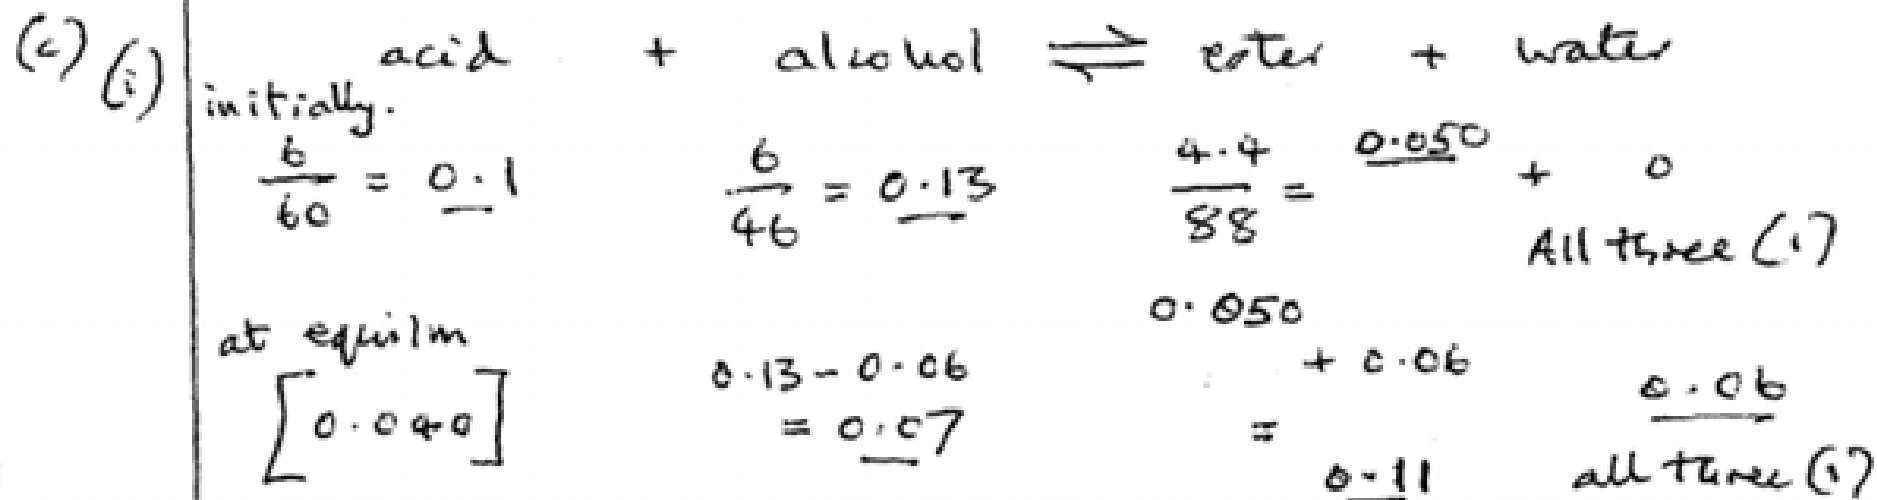 (c) (i) acid + alcohol ⇌ ester + water
initially.
6/60 = 0.1 6/46 = 0.13 4.4/88 = 0.050 + 0
All three (1)
at equilm
[0.040] 0.13 - 0.06 = 0.07 0.050 + 0.06 = 0.11 0.06
all three (1)